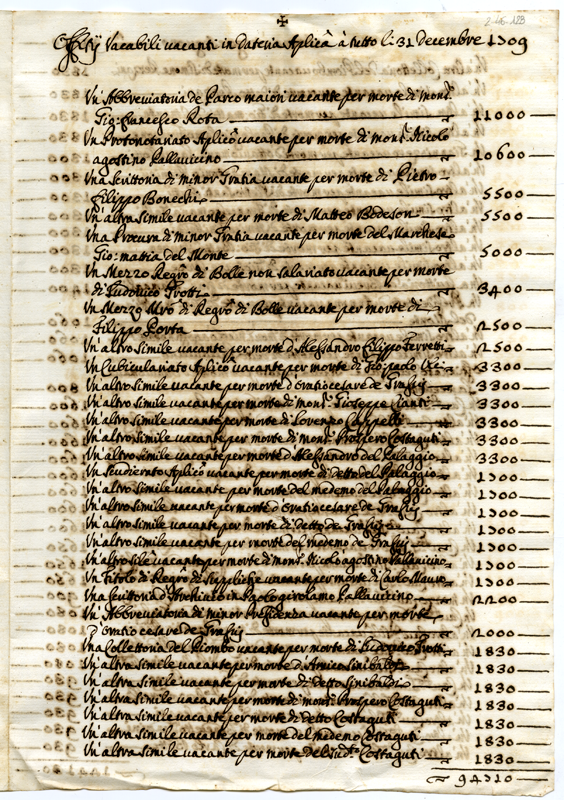 ✠
2-46-123
Offitij Vacabili vacanti in Dateria Aplicã à tutto li 31 decembre 1709
Un' Abbreviatoria de Parco maiori vacante per morte di mons.r
Gio: Francesco Rota 11000
Un Protonotariato Aplico vacante per morte di mons.r Nicolò
agostino Pallavicino 10600
Una Scrittoria di minor Gratia vacante per morte di Pietro
Filippo Bonechi 5500
Un altra simile vacante per morte di Matteo Bodeson 5500
Una Procura di minor Gratia vacante per morte del Marchese
Gio: mattia del Monte 5000
Un Mezzo Regrõ di Bolle non salariato vacante per morte
di Ludovico Trotti 3400
Un Mezzo di Regrõ di Bolle vacante per morte di
Filippo Porta 2500
Un' altro simile vacante per morte d'Alessandro Filippo Ferretti 2500
Un Cubiculariato Aplico vacante per morte di Gio: paolo 3300
Un' altro simile vacante per morte d'Oratio cesare de 3300
Un' altro simile vacante per morte di mons.r Gioseppe Cianti 3300
Un' altro simile vacante per morte di Lorenzo Cappelli 3300
Un' altro simile vacante per morte di mons.r Prospero Costaguti 3300
Un' altro simile vacante per morte d'Alessandro del Palaggio 3300
Un Scudierato Aplico vacante per morte di detto del Palaggio 1300
Un' altro simile vacante per morte del medemo del Palaggio 1300
Un' altro simile vacante per morte d'Oratio cesare de 1300
Un' altro simile vacante per morte di detto de 1300
Un' altro simile vacante per morte del medemo de 1300
Un' altro sile vacante per morte di mons.r Nicolò agostino Pallavicino 1300
Un Titolo di Regro di Suppliche vacante per morte di Carlo 1300
Una Scrittoria d'Archivio in Paolo girolamo Pallavicino 2200
Un' Abbreviatoria di minor Presidenza vacante per morte
d'Oratio cesare de 2000
Una Collettoria del Piombo vacante per morte di Ludovico Trotti 1830
Un' altra simile vacante per morte d'Amico Sinibaldi 1830
Un' altra simile vacante per morte di detto Sinibaldi 1830
Un' altra simile vacante per morte di mons.r Prospero Costaguti 1830
Un' altra simile vacante per morte di detto Costaguti 1830
Un' altra simile vacante per morte del medemo Costaguti 1830
Un' altra simile vacante per morte del sud.to Costaguti 1830
94310